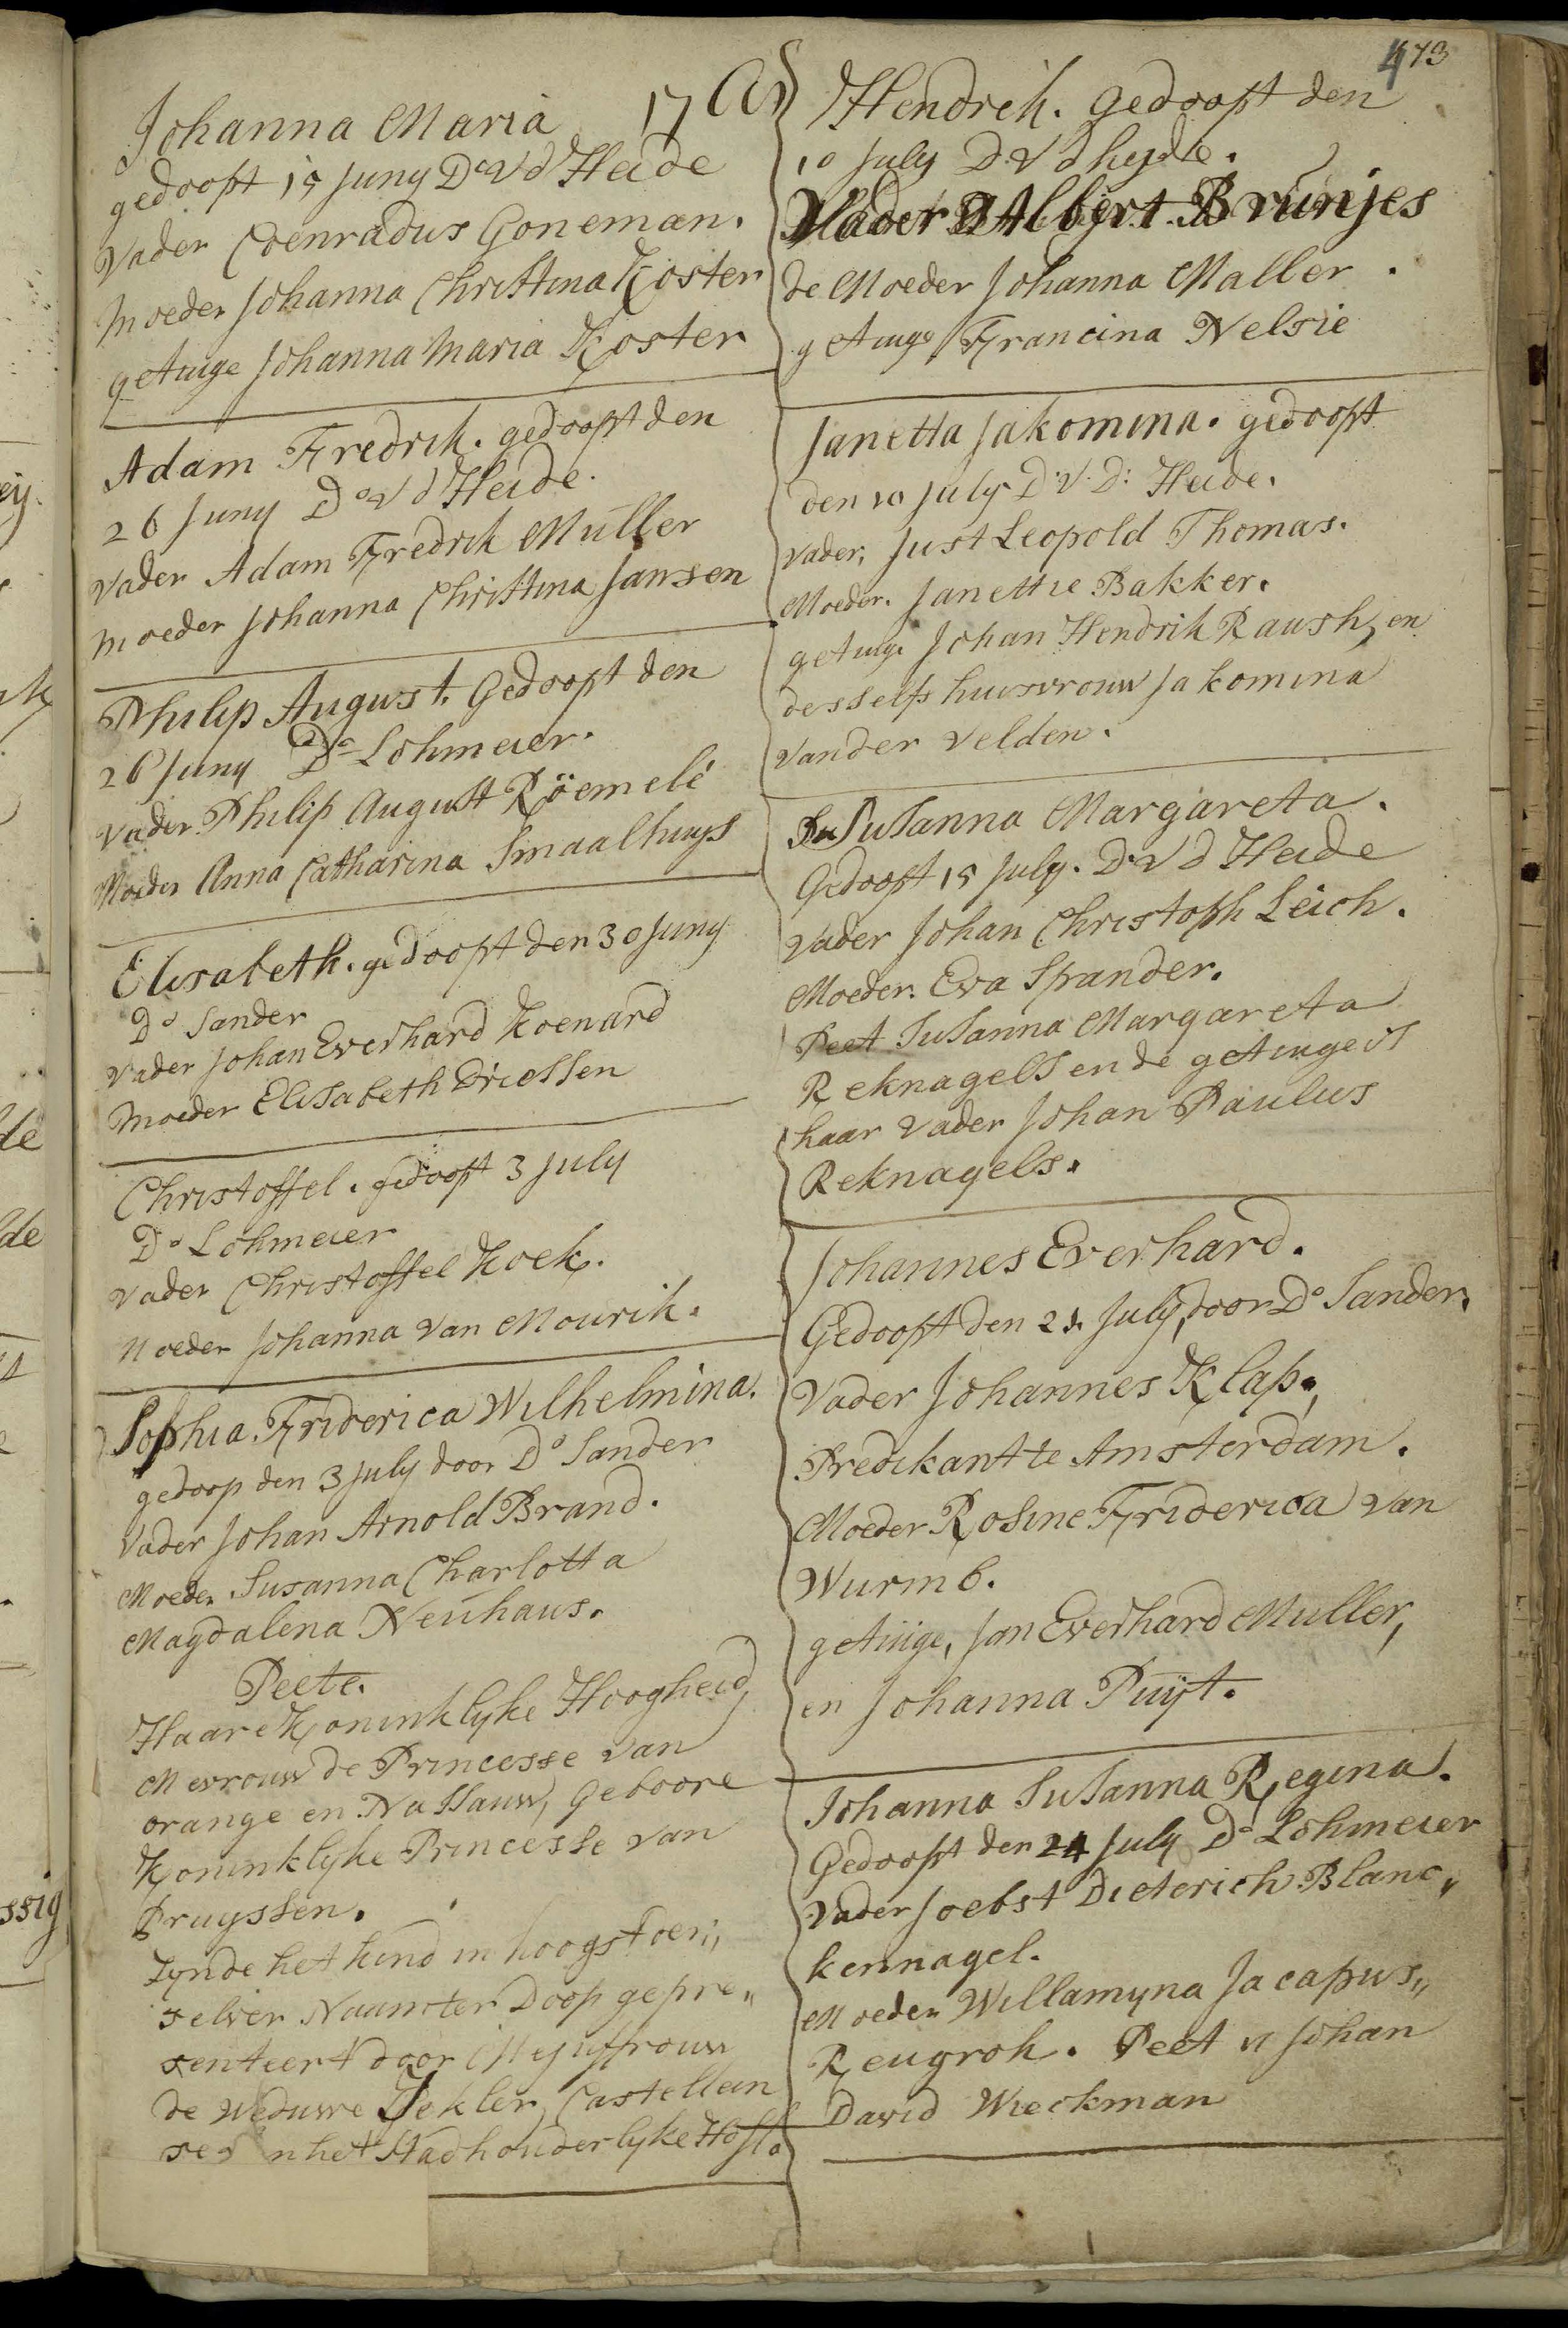 473
17
Johanna Maria
gedoopt 15 Juny Do Vd Heide
Vader Coenradus Goneman.
Moeder Johanna Christina Koster
getuige Johanna Maria Koster
Adam Fredrik. gedoopt den
26 Juny Do Vd Heide.
Vader Adam Fredrik Muller
Moeder Johanna Christina Jansen
Philip August. Gedoopt den
26 Juny Do Lohmeier.
Vader Philip August Röemelé
Moeder Anna Catharina Smaalhuys
Elisabeth. gedoopt den 30 Juny
Do Sander
Vader Johan Everhard Koenard
Moeder Elisabeth Driessen
Christoffel. gedoopt 3 July
Do Lohmeier
Vader Christoffel Koek.
Moeder Johanna Van Mourik.
Sophia Friderica Wilhelmina.
gedoop den 3 July door Do Sander
Vader Johan Arnold Brand.
Moeder Susanna Charlotta
Magdalena Neuhaus.
Peete.
Haare Koninklyke Hoogheid,
Mevrouw de Princesse van
Orange en Nassauw, Geboore
Koninklyke Princesse van
Pruyssen.
Zynde het kind in hoogst der„
selver Naam ter Doop gepre„
senteert door Mejuffrouw
de Weduwe Zekler, Castellein
se nhet Stadhouderlyke Hof.
Hendrik. gedoopt den
10 July D. V d heyde.
Vader Albert Brunjes
de Moeder Johanna Maller.
getuige Francina Nelsie
Janetta Jakomina. gedoopt
den 10 July D: V: D: Heide.
Vader, Just Leopold Thomas.
Moeder. Janettie Bakker.
getuige Johan Hendrik Raush, en
desselfs huisvrouw Jakomina
Vander Velden.
Susanna Margareta.
Gedoopt 15 July. Do Vd Heide
Vader Johan Christoph Leich.
Moeder. Eva Spander.
Peet Susanna Margareta
Reknagels en de getuige is
haar Vader Johan Paulus
Reknagels.
Johannes Everhard.
Gedoopt den 21 July, door Do Sander.
Vader Johannes Klap,
Predikant te Amsterdam.
Moeder Rosine Friderica van
Wurmb.
getuige, Jan Everhard Muller,
en Johanna Puijt.
Johanna Susanna Regina.
Gedoopt den 24 July Do Lohmeier
Vader Joebst Dieterich Blanc„
kennagel.
Moeder Willamyna Jacapus„
Reugrok. Peet is Johan
David Wieckman